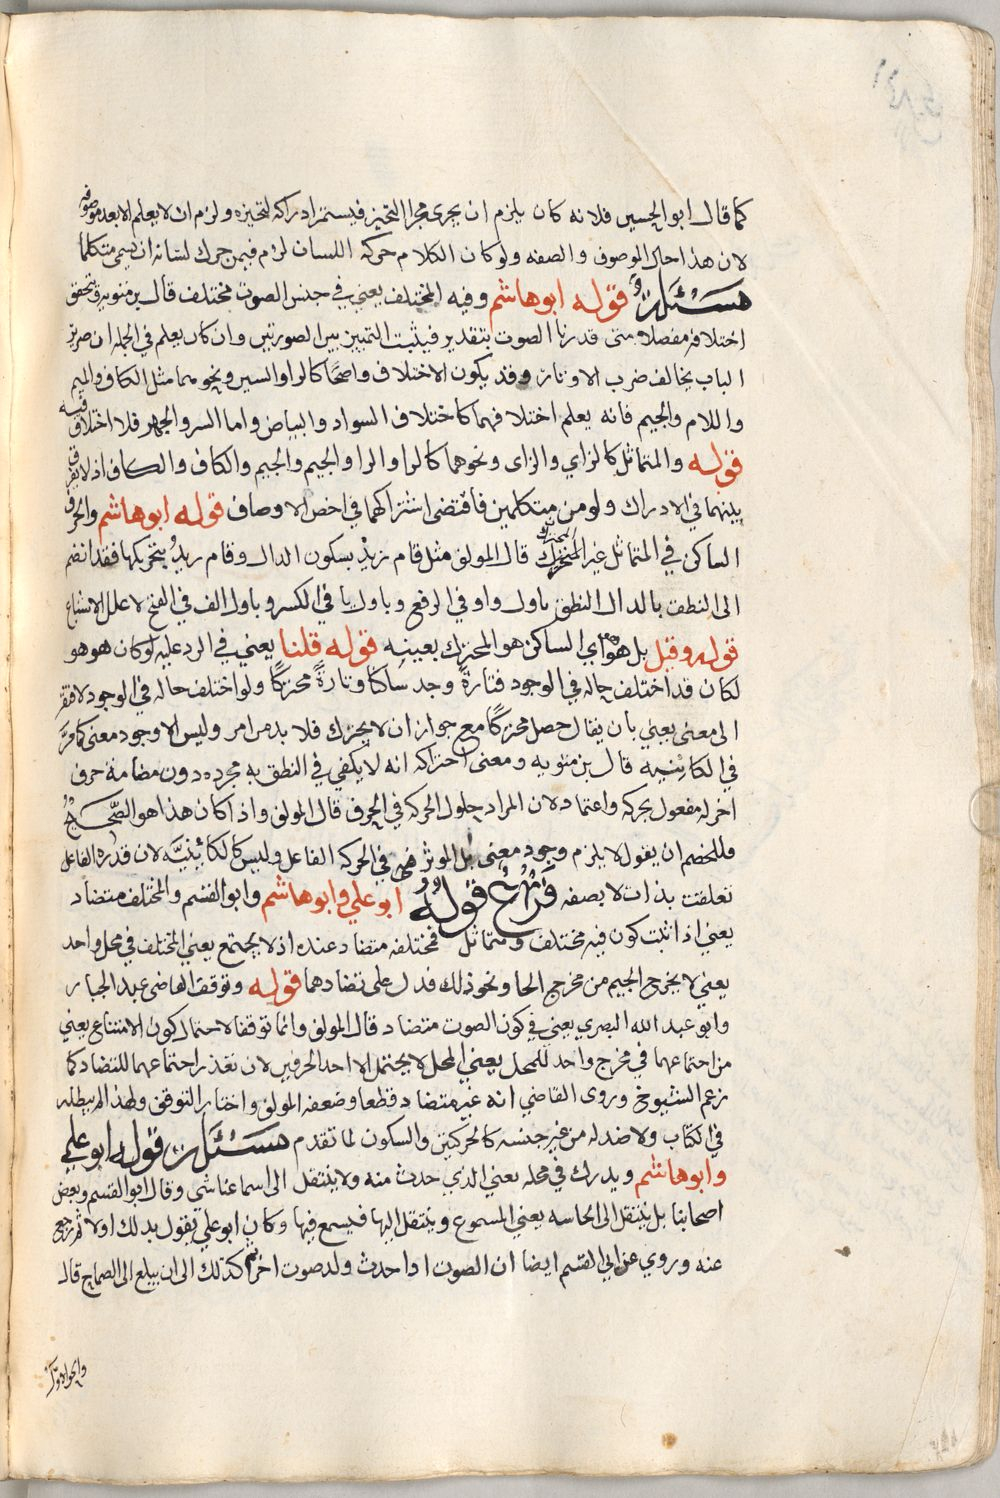 كما قال ابو الحسين فلانه كان يلزم ان يجرى مجرا التحيز فيستمر ادراكه لتحيزه ولزم ان لا يعلم الا بعد موصوفه
لان هذا حال الموصوف والصفه ولو كان الكلام حركه اللسان لزم فيمن حرك لسانه ان يسمى متكلما
مسئلة قوله ابو هاشم وفيه المختلف يعني في جنس الصوت مختلف قال بن متويه وتحقق
اختلافه مفصلا متى قدرنا الصوت بتقدير فيثبت التمييز بين الصورتين وان كان يعلم في الجمله ان صرير
الباب يخالف ضرب الاوتار وقد يكون الاختلاف واضحا كالرا والسين ونحوهما مثل الكاف والميم
واللام والجيم فانه يعلم اختلافهما كاختلاف السواد والبياض واما السر والجهر فلا اختلاف فيه
قوله والمتماثل كالزاي والزاى ونحوهما كالرا والرا والجيم والجيم والكاف والكاف اذ لا يفرق
بينهما في الادراك ولو من متكلمين فاقتضى اشتراكهما في اخص الاوصاف قوله ابو هاشم والحرف
الساكن في المتماثل غير المتحرك قال المولف مثل قام زيد بسكون الدال وقام زيدُ بتحريكها فقد انضم
الى النطق بالدال النطق باول واو في الرفع وباول يا في الكسر وباول الف في الفتح لاعلى الاشباع
قوله وقيل بل هو اي الساكن هو المحرك بعينه قوله قلنا يعني في الرد عليه لو كان هو هو
لكان قد اختلف حاله في الوجود فتارةً وجد ساكنا وتارةً محركًا ولو اختلف حاله في الوجود لافتقر
الى معنى يعني بان يقال حصل محركًا مع جواز ان لا يحرك فلا بد من امر وليس الا وجود معنى كما مرَّ
في الكائنيه قال بن متويه ومعنى احتراكه انه لا يكفي في النطق به مجرده دون مضامة حرف
اخر له مفعول بحركه واعتماد لان المراد حلول الحركه في الحرف قال المولف واذا كان هذا هو الصّحيح
فللخصم ان يقول لا يلزم وجود معنى بل الموثر في الحركه الفاعل وليس كالكائنيَّه لان قدرة الفاعل
تعلقت بذات لا بصفه فرع قوله ابو علي وابو هاشم وابو القسم والمختلف متضاد
يعني اذا ثبت كون فيه مختلف ومتماثل فمختلفه متضاد عنده اذ لا يجتمع يعني المختلف في محل واحد
يعني لا يخرج الجيم من مخرج الحا ونحو ذلك فدل على تضادهما قوله وتوقف القاضى عبد الجبار
وابو عبد الله البصري يعني في كون الصوت متضاد قال المولف وانما توقفا لاحتمال كون الامتناع يعني
من اجتماعهما في مخرج واحد للمحل يعني المحل لا يحتمل الا احد الحرفين لا ان تعذر اجتماعهما للتضاد كما
زعم الشيوخ وروى القاضي انه غير متضاد قطعا وضعفه المولف واختار التوقف ولهذا لم يبطله
في الكتاب ولا ضد له من غير جنسه كالحركتين والسكون لما تقدم مسئلة قوله ابو علي
وابو هاشم ويدرك في محله يعني الذي حدث منه ولا ينتقل الى اسماعنا شي وقال ابو القسم وبعض
اصحابنا بل ينتقل الى الحاسه يعني المسموع وينتقل اليها فيسمع فيها وكان ابو علي يقول بذلك اولا ثم رجع
عنه وروي عن ابي القسم ايضا ان الصوت اذا حدث ولد صوت اخر ثم كذلك الى ان يبلغ الى الصماخ قال